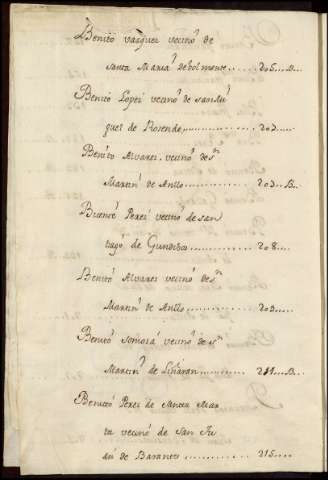 Benito vazquez vecino de
santa Maria de bolmente......205...B.
Benito Lopez vecino de san Mi
guel de Rosende..............202.....
Benito Alvarez vecino de sn
Martin de Anllo..............203..B.
Perez vecino de san
tiago de Gundibos............208....
Benito Alvarez vecino de sn
Martin de Anllo..............209.....
Benito vecino de sn
Martin de Liñaran............211..B.
Benito Perez de Santa Mar
ta vecino de san Ju
de Barantes..................215.....